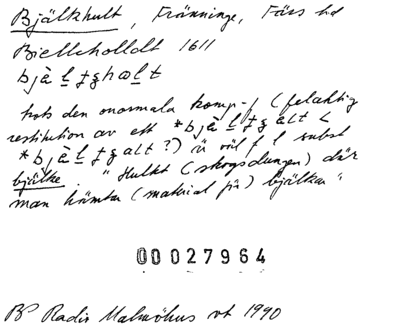 Bjälkhult, Fränninge, Färs hd
Bielkeholldt 1611
trots den onormala komp.-f (felaktig
restitution av ett <
?) är väl f l subst
bjälke. "Hultet (skogsdungen) där
man hämtar (material för) bjälkar"
00027964
BP Radis Malmöhus vt 1990